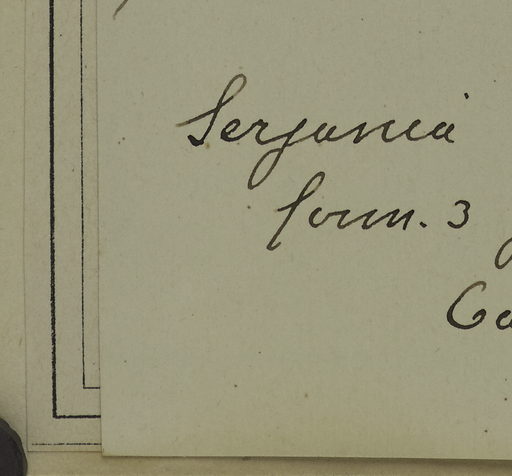 Serjania
form. 3
Ca